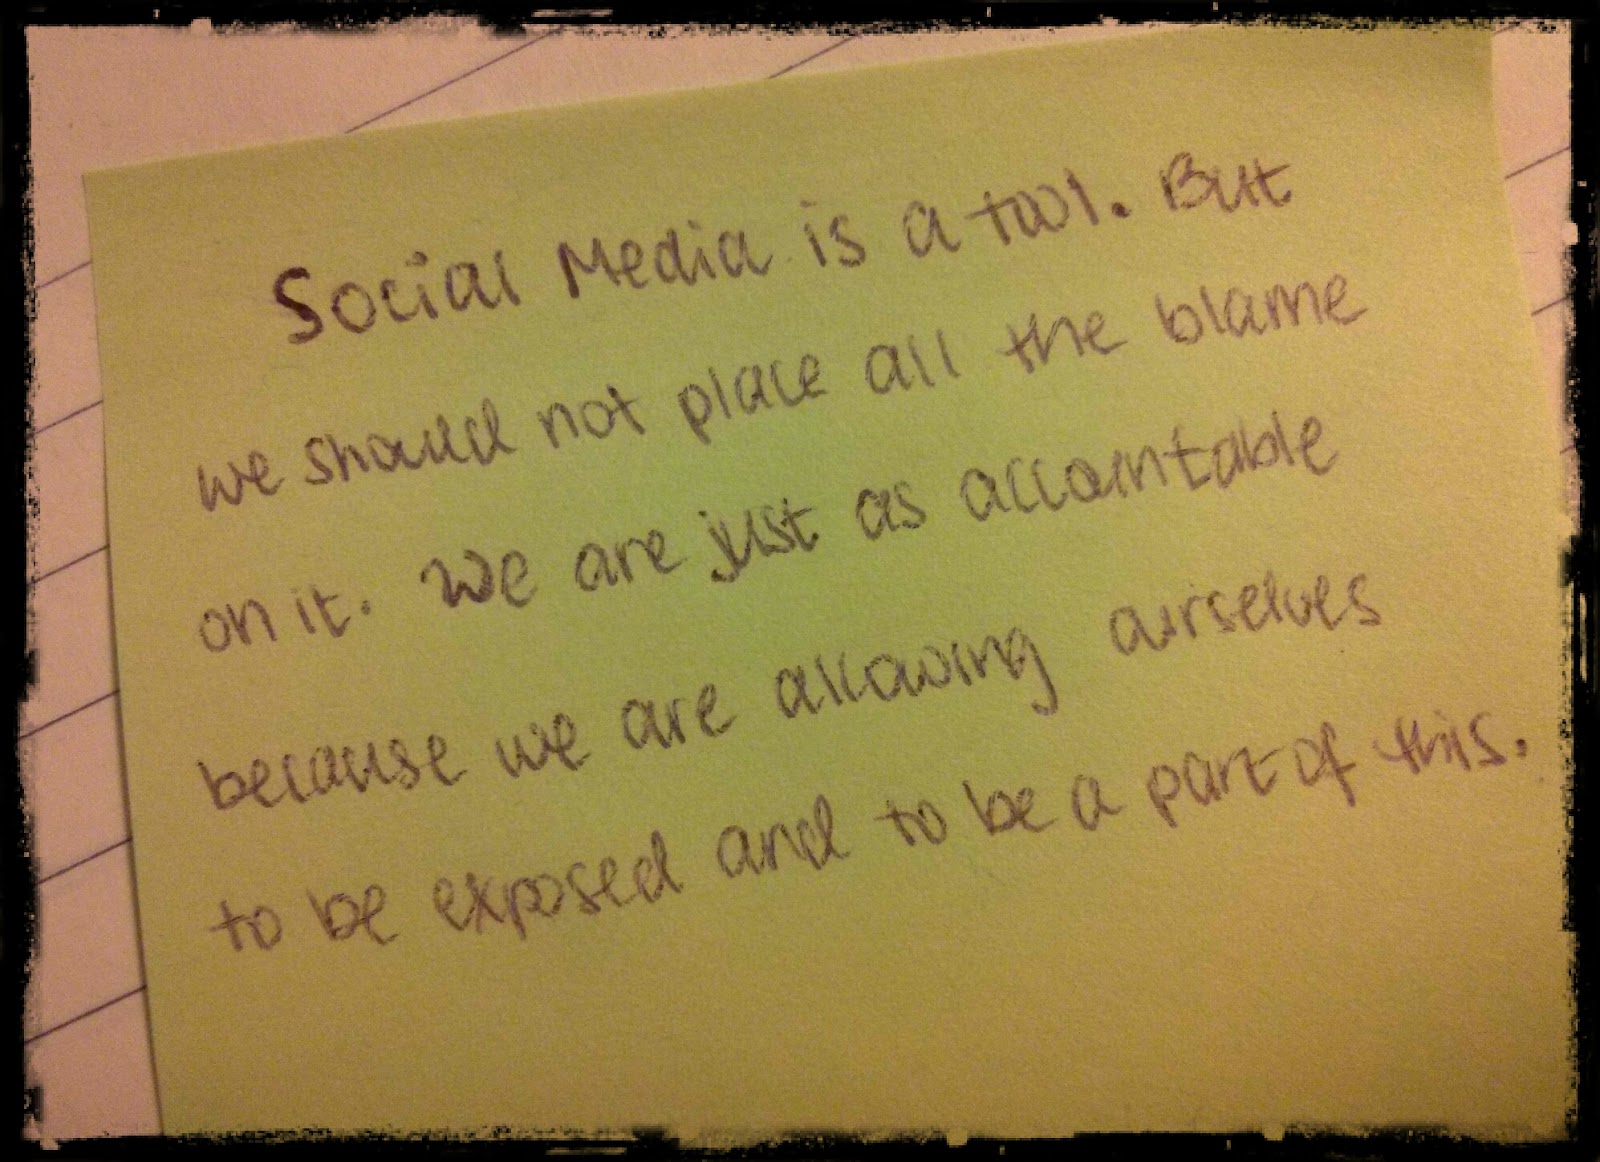 Social Media is a tool. But
we should not place all the blame
on it. We are just as accountable
because we are allowing ourselves
to be exposed and to be a part of this.